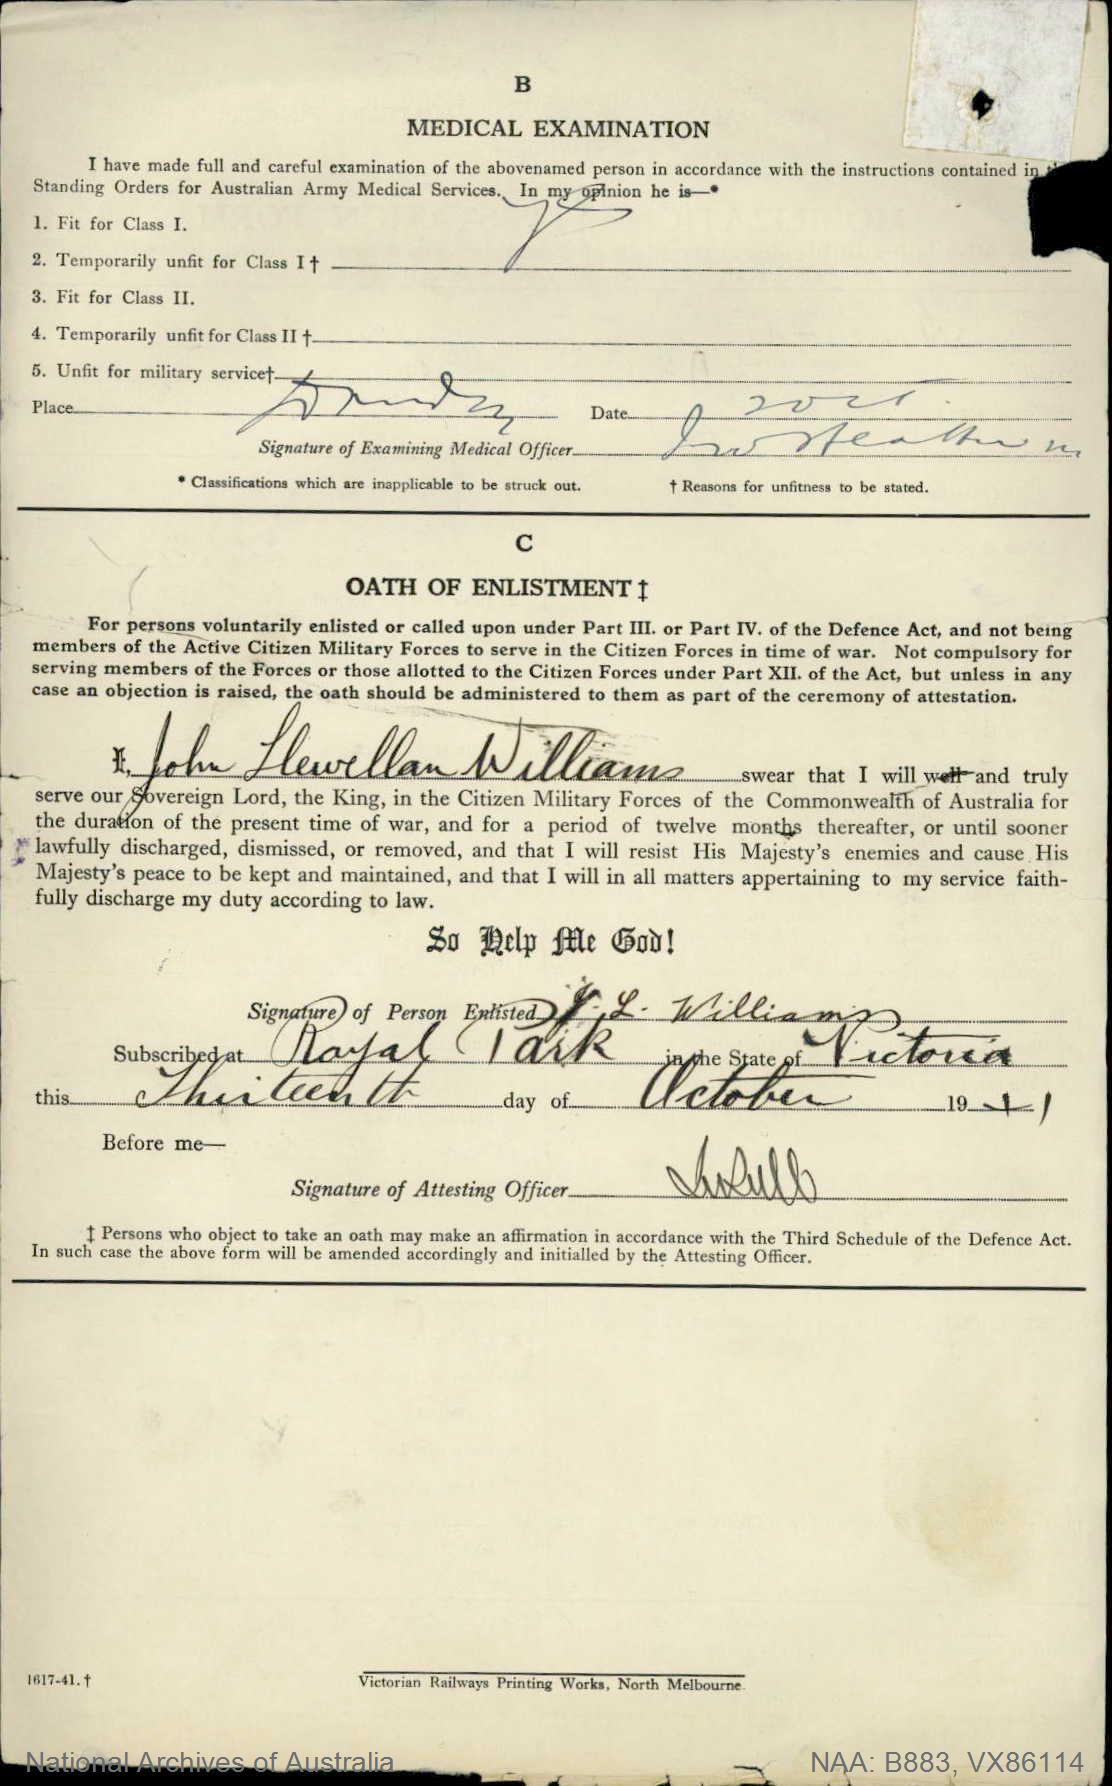 B
MEDICAL EXAMINATION
I have made full and careful examination of the abovenamed person in accordance with the instructions contained in
Standing Orders for Australian Army Medical Services. In my opinion he is—*
1. Fit for Class I.
2. Temporarily unfit for Class I †
3. Fit for Class II.
4. Temporarily unfit for Class II †
5. Unfit for military service†
Place Date
Signature of Examining Medical Officer
* Classifications which are inapplicable to be struck out. † Reasons for unfitness to be stated.
C
OATH OF ENLISTMENT ‡
For persons voluntarily enlisted or called upon under Part III. or Part IV. of the Defence Act, and not being
members of the Active Citizen Military Forces to serve in the Citizen Forces in time of war. Not compulsory for
serving members of the Forces or those allotted to the Citizen Forces under Part XII. of the Act, but unless in any
case an objection is raised, the oath should be administered to them as part of the ceremony of attestation.
I, John Llewellan Williams swear that I will well and truly
serve our Sovereign Lord, the King, in the Citizen Military Forces of the Commonwealth of Australia for
the duration of the present time of war, and for a period of twelve months thereafter, or until sooner
lawfully discharged, dismissed, or removed, and that I will resist His Majesty's enemies and cause His
Majesty's peace to be kept and maintained, and that I will in all matters appertaining to my service faith-
fully discharge my duty according to law.
So Help Me God!
Signature of Person Enlisted J. L. Williams
Subscribed at Royal Park in the State of Victoria
this Thirteenth day of October 1941
Before me—
Signature of Attesting Officer
‡ Persons who object to take an oath may make an affirmation in accordance with the Third Schedule of the Defence Act.
In such case the above form will be amended accordingly and initialled by the Attesting Officer.
1617-41.†
Victorian Railways Printing Works, North Melbourne.
National Archives of Australia NAA: B883, VX86114